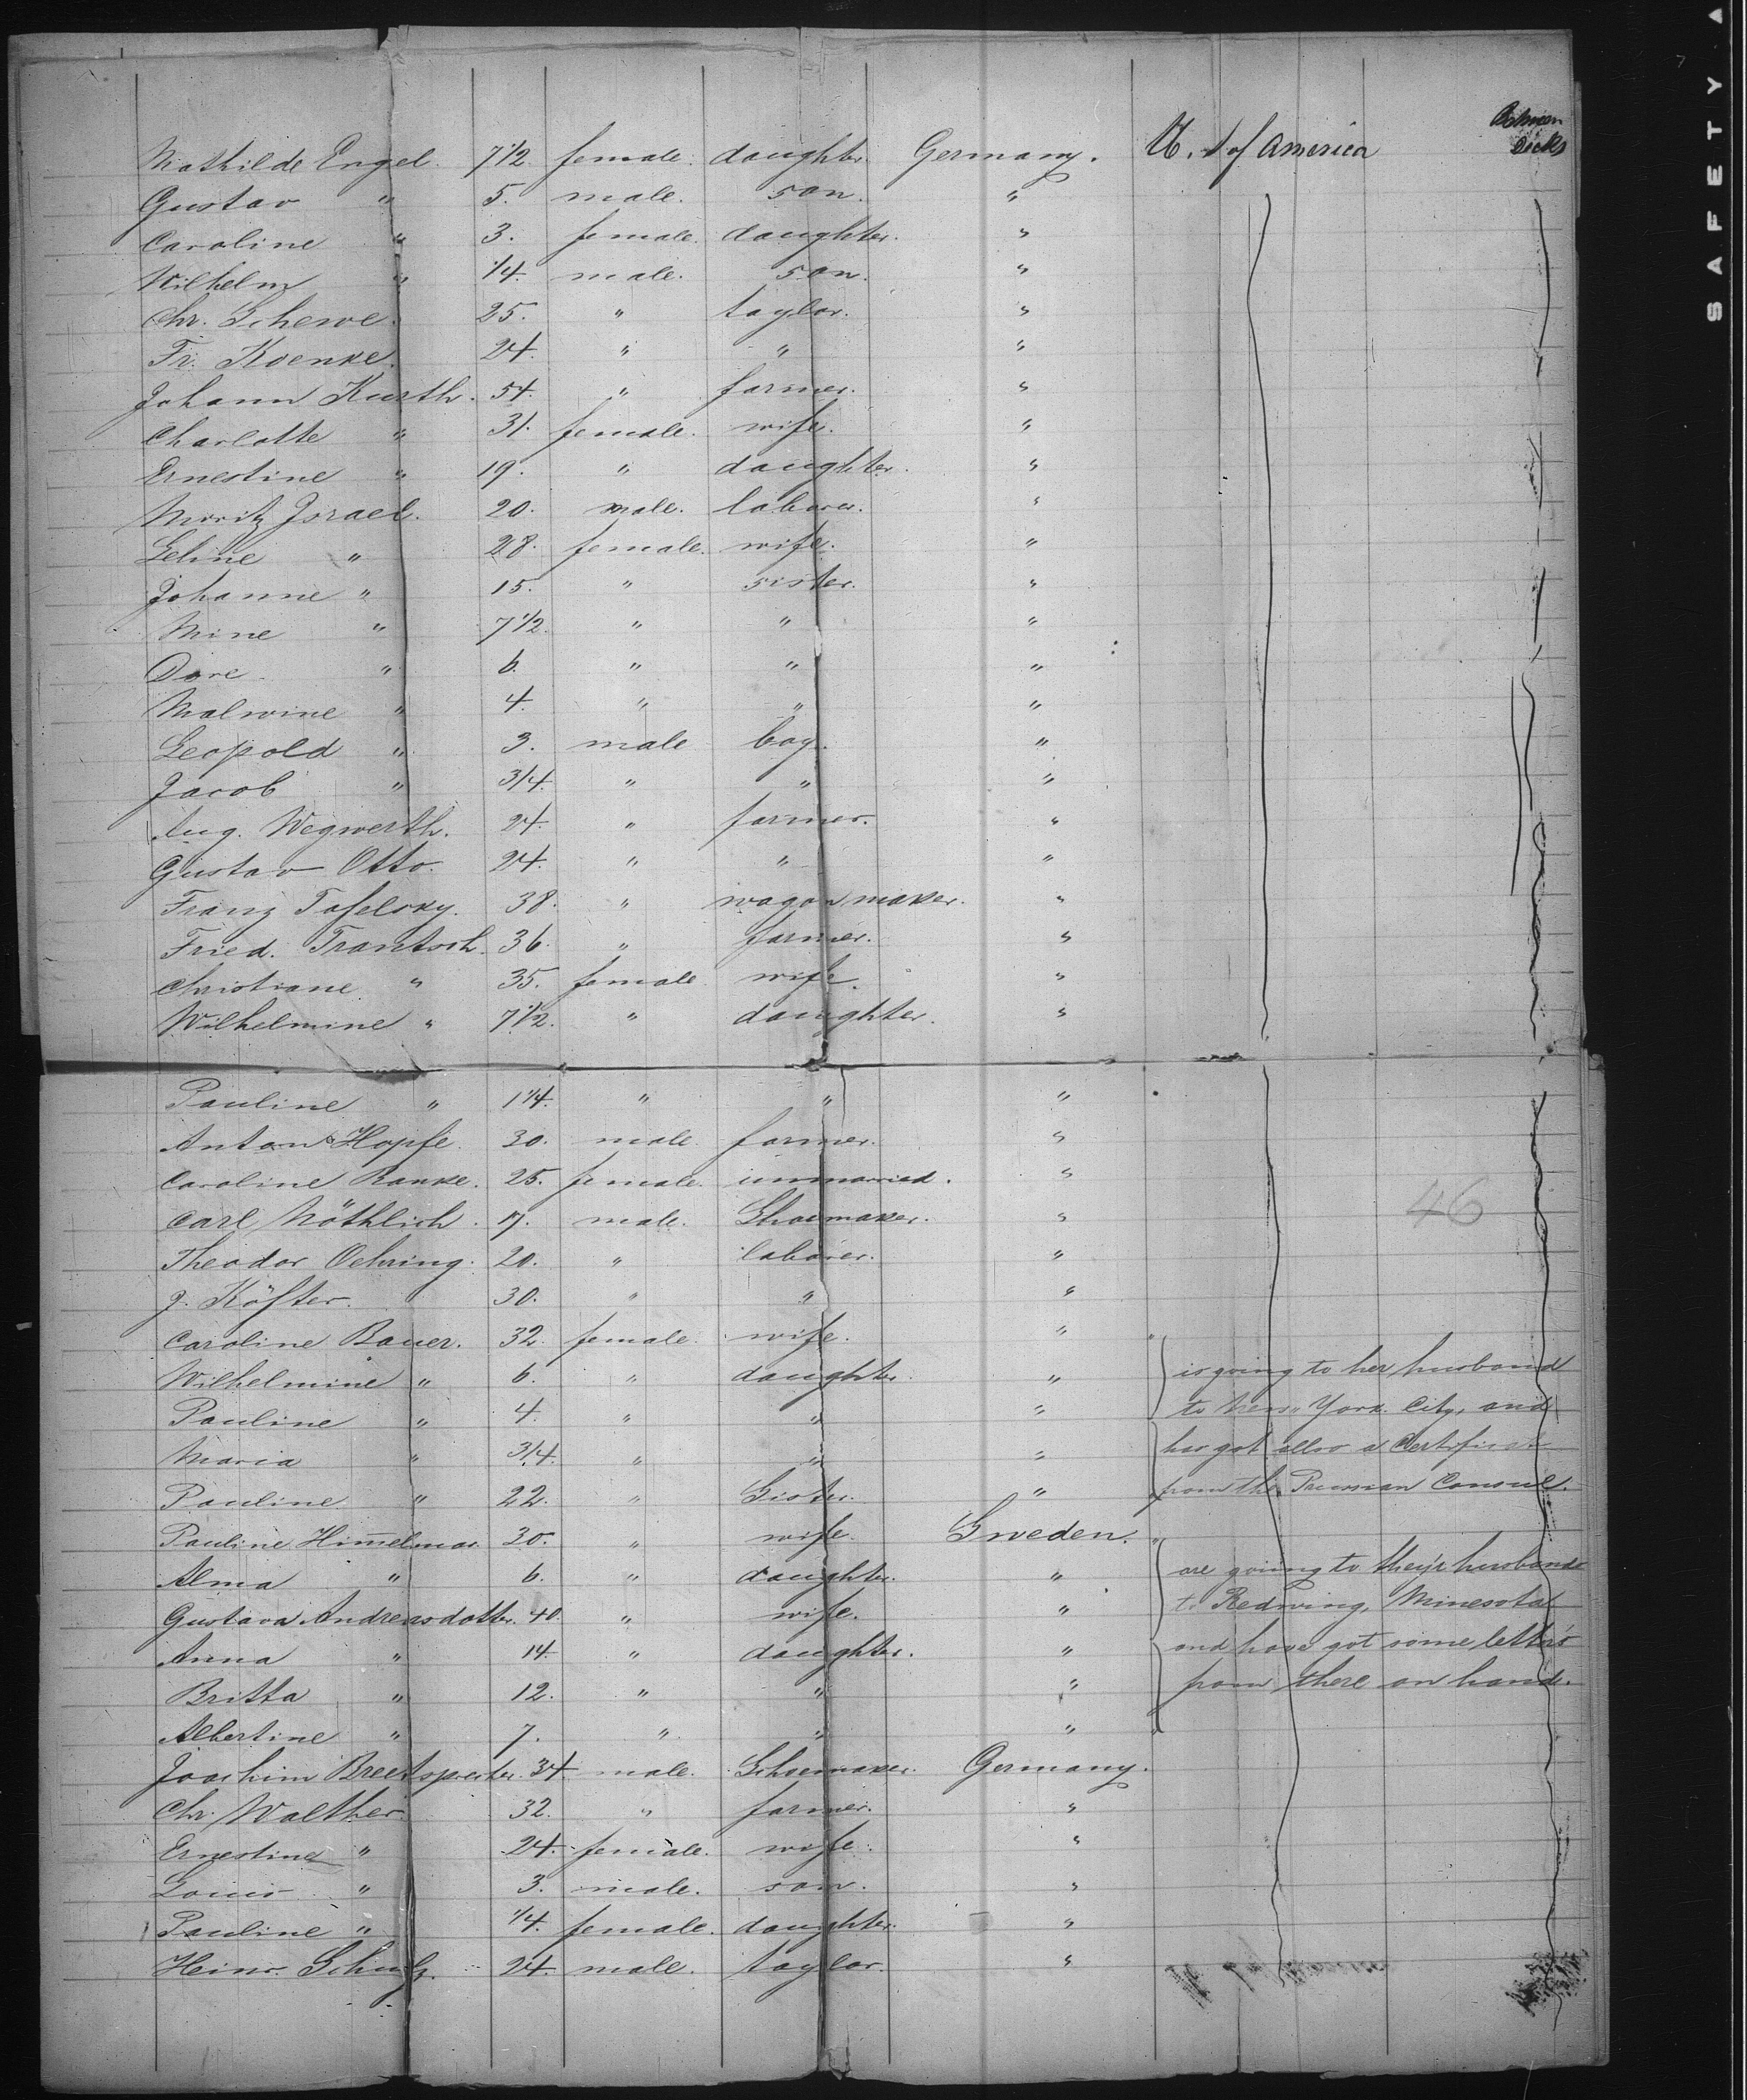 Between
Decks
Mathilde Engel. 7 1/2. female. daughter. Germany. U. S of America
Gustav " 5. male. son. "
Caroline " 3. female. daughter. "
Wilhelm " 1/4. male. son. "
Chr. Schewe. 25. " taylor. "
Fr. Koenke. 24. " " "
Johann Kurth. 54. " farmer. "
Charlotte " 31. female. wife. "
Ernestine " 19. " daughter. "
Moritz Israel. 20. male. laborer. "
Leline " 28. female. wife. "
Johanne " 15. " sister. "
Mine " 7 1/2. " " "
Dore " 6. " " "
Malwine " 4. " " "
Leopold " 3. male boy. "
Jacob " 3/4. " " "
Aug. Wegwerth. 24. " farmer. "
Gustav Otto. 24. " " "
Franz Tafelsky. 38. " wagon maker. "
Fried. Trantsch. 36. " farmer. "
Christiane " 35. female wife. "
Wilhelmine " 7 1/2. " daughter. "
Pauline " 1 1/4. " " "
Anton Hopfe. 30. male. farmer. "
Caroline Ranke. 25. female. unmarried. "
46
Carl Nöthlich. 17. male. Shoemaker. "
Theodor Oehring. 20. " laborer. "
J. Köfter. 30. " " "
Caroline Bauer. 32. female. wife. "
Wilhelmine " 6. " daughter. " is going to her husband
Pauline " 4. " " " to New York City, and
Maria " 3/4. " " " has got also a Certificate
Pauline " 22. " Sister. " from the Prussian Consul.
Pauline Him̄elmar. 30. " wife. Sweden.
Alma " 6. " daughter. " are going to they'r husbands
Gustava Andreasdotter. 40. " wife. " to Redwing, Minesota
Anna " 14. " daughter. " and have got some letters
Britta " 12. " " " from there on hand.
Albertine " 7. " " "
Joachim Breetsprecher. 34. male. Schoemaker. Germany.
Chr. Walther. 32. " farmer. "
Ernestine " 24. female. wife. "
Louis " 3. male. son. "
Pauline " 1/4. female. daughter. "
Heinr. Schulz. 24. male. taylor. "
SAFETY A